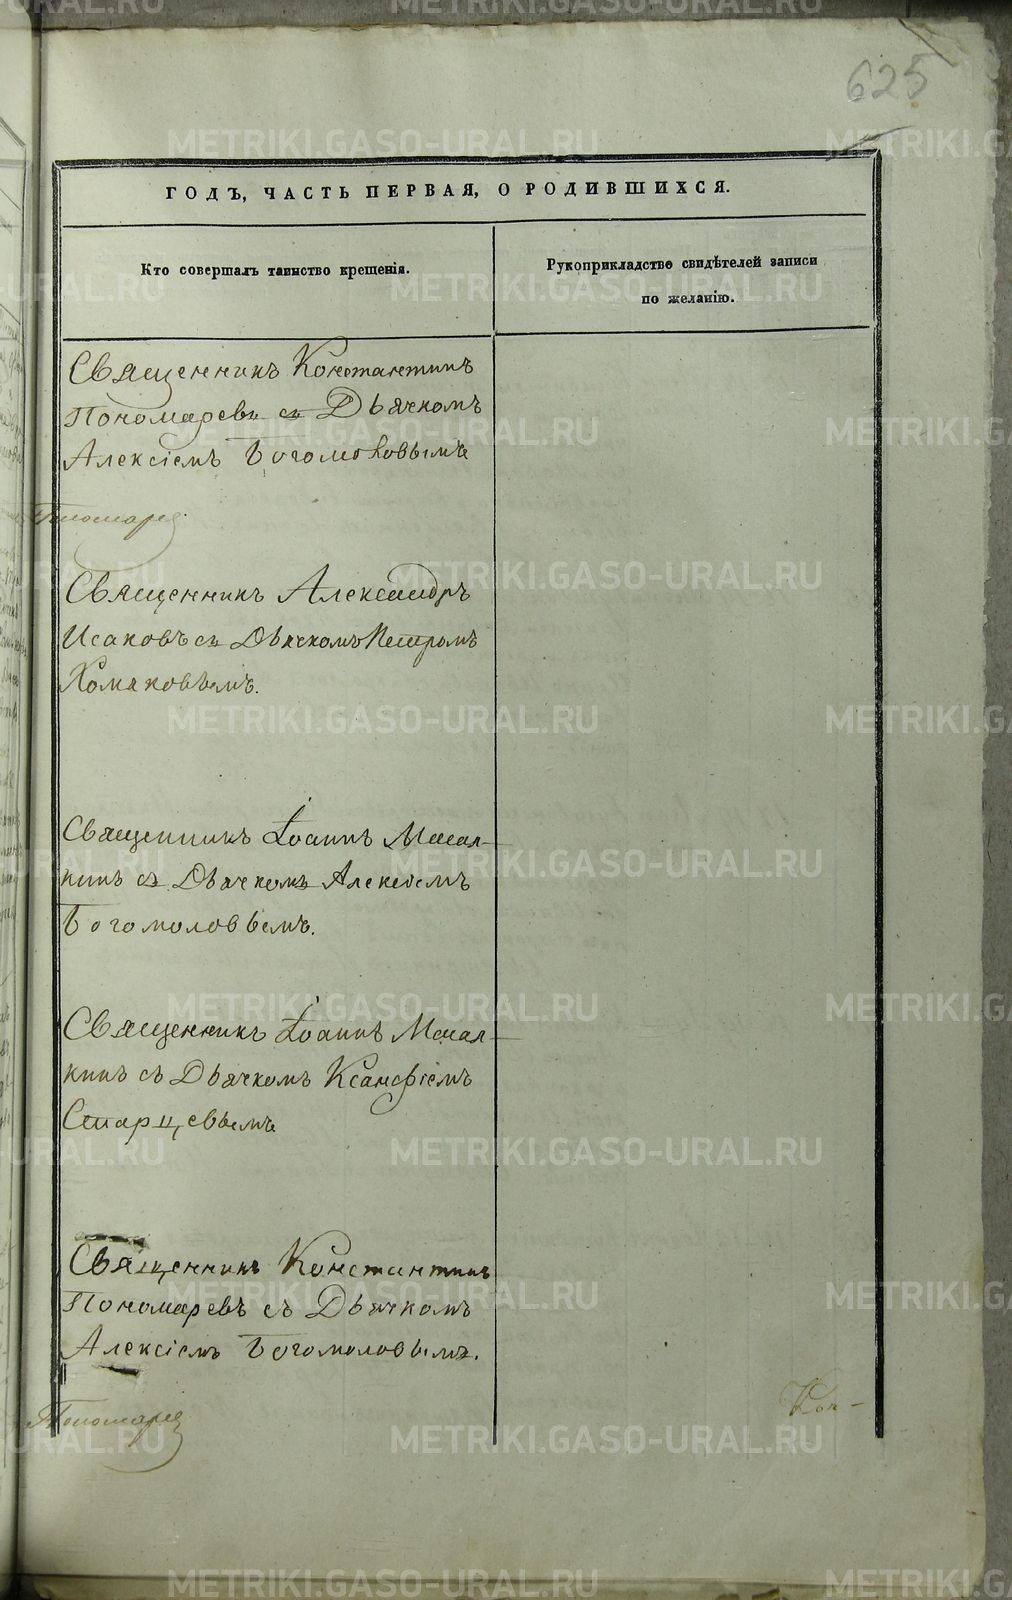 625
ГОДЪ, ЧАСТЬ ПЕРВАЯ, О РОДИВШИХСЯ.
Кто совершалъ таинство крещенія.
Рукоприкладство свидѣтелей записи
по желанію.
Священникъ Константинъ
Пономаревъ съ Дьячкомъ
Алексіемъ Богомоловымъ
Священникъ Александръ
Исаковъ съ Дьячкомъ Петромъ
Хомяковымъ.
Священникъ Іоаннъ
кинъ съ Дьячкомъ Алексіемъ
Богомоловымъ.
Священникъ Іоаннъ
кинъ съ Дьячкомъ Ксанфіемъ
Старцевымъ
Священникъ Константинъ
Пономаревъ съ Дьячкомъ
Алексіемъ Богомоловымъ.
METRIKI.GASO-URAL.RU